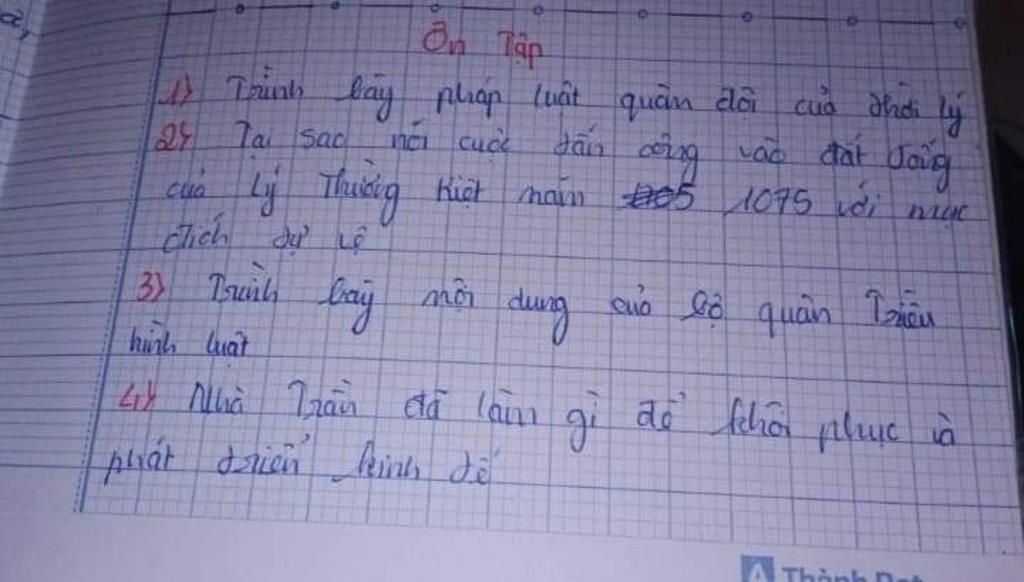 Ôn Tập
1) Trình bày pháp luật quân đội của thời lý
2) Tại sao nói cuộc tấn công vào đất Tống
của Lý Thường Kiệt năm 1075 với mục
đích tự vệ
3) Trình bày nội dung của Bộ quân Triều
hình luật
4) Nhà Trần đã làm gì để khôi phục và
phát triển kinh tế